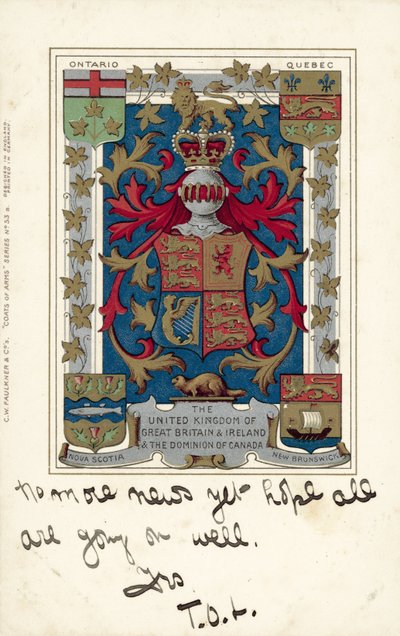 ONTARIO
QUEBEC
C.W. FAULKNER & Co's. "COATS OF ARMS" SERIES No 53 B.
DESIGNED IN ENGLAND.
PRINTED IN GERMANY.
THE
UNITED KINGDOM OF
GREAT BRITAIN & IRELAND
& THE DOMINION OF CANADA
NOVA SCOTIA
NEW BRUNSWICK
No more news yet hope all
are going on well.
Yrs
T.O.L.